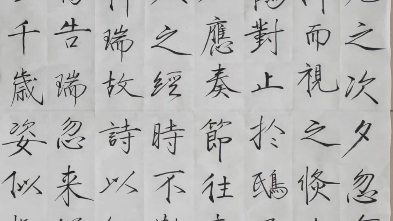 之次夕忽
而視之倏
對止於鴟
應奏節往
之經時不
瑞故詩以
告瑞忽来
千歳姿似